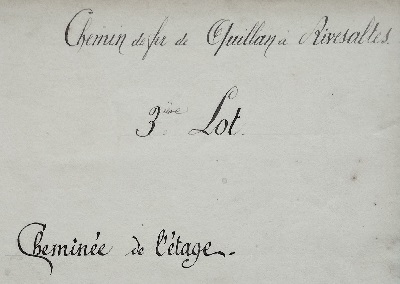 Chemin de fer de Quillan à Rivesaltes.
3ième Lot.
Cheminée de l'étage.